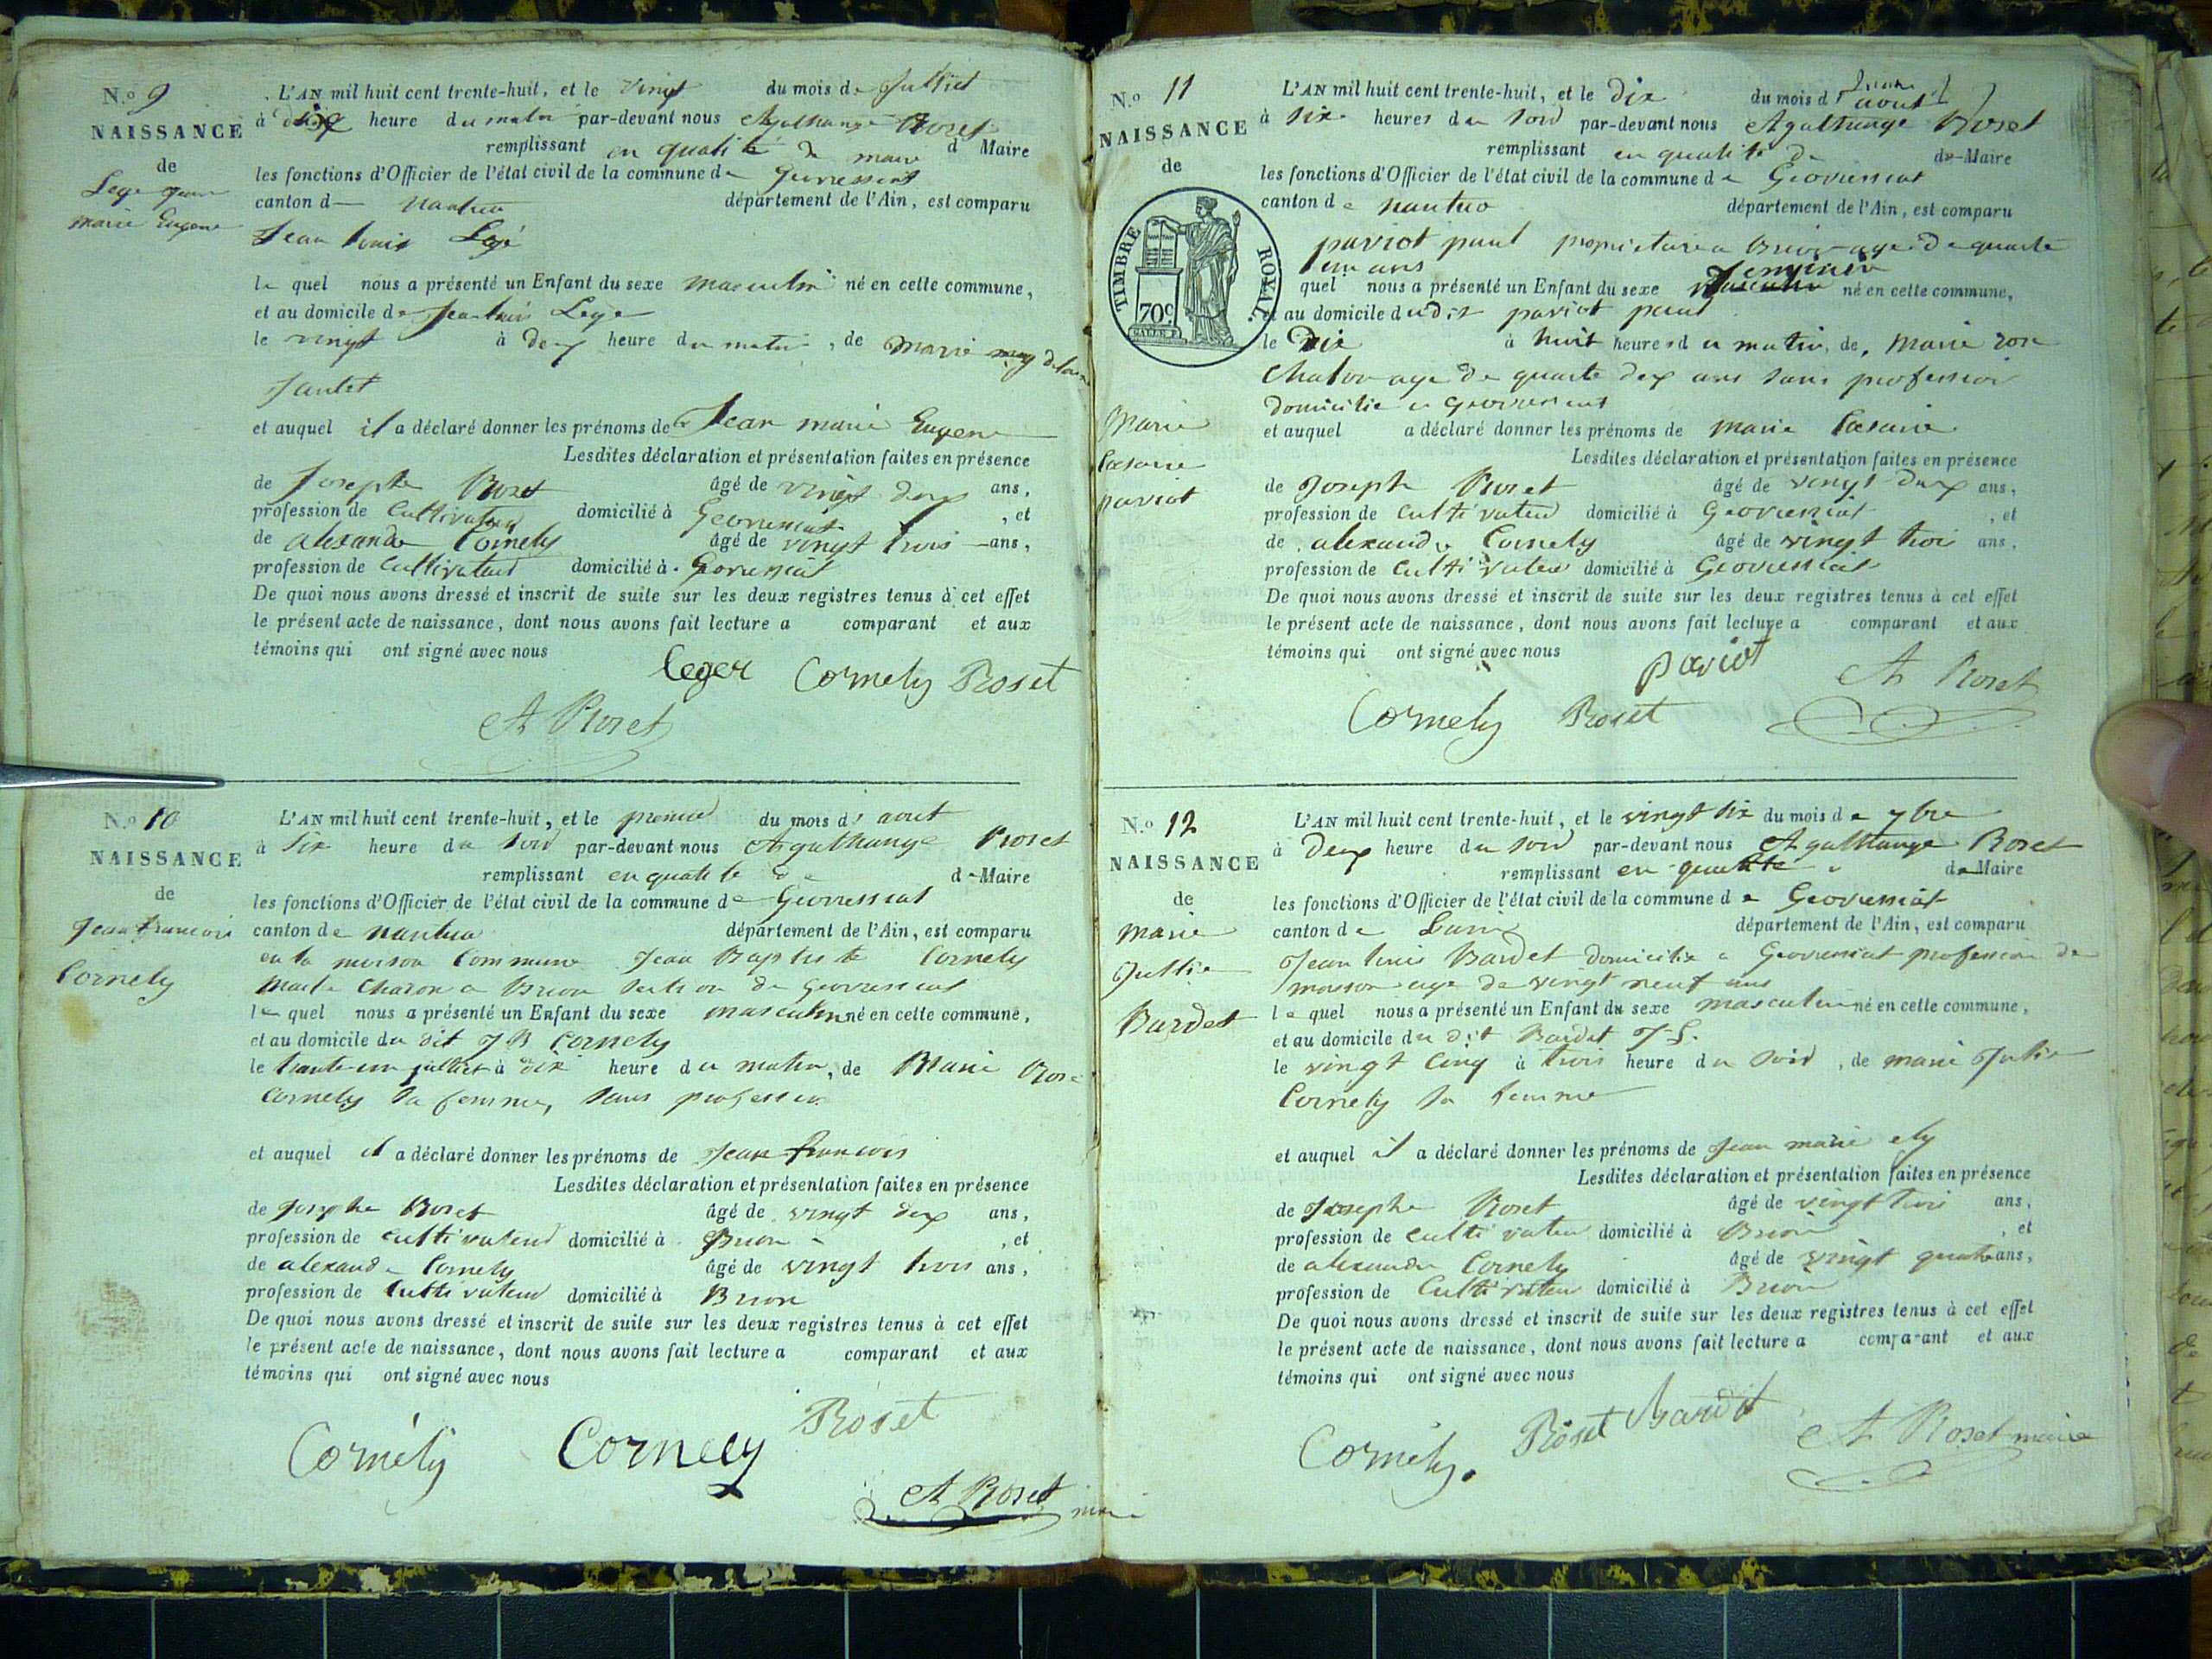 N.º 9
NAISSANCE
de
Lege Jean
marie Eugene
L'AN mil huit cent trente-huit, et le vingt du mois de Julliet
à heure du matin par-devant nous Agathange Roset
remplissant en qualité de maire d Maire
les fonctions d'Officier de l'état civil de la commune de Geovressiat
canton d Nantua département de l'Ain, est comparu
Jean Louis Legé
le quel nous a présenté un Enfant du sexe masculin né en cette commune,
et au domicile de Jean Louis Lege
le vingt à deux heure du matin, de Marie
Jantet
et auquel il a déclaré donner les prénoms de Jean marie Eugene
Lesdites déclaration et présentation faites en présence
de Joseph Roset âgé de vingt deux ans,
profession de Cultivateur domicilié à Geovressiat, et
de alexandre Cornely âgé de vingt trois ans,
profession de Cultivateur domicilié à Geovressiat
De quoi nous avons dressé et inscrit de suite sur les deux registres tenus à cet effet
le présent acte de naissance, dont nous avons fait lecture a comparant et aux
témoins qui ont signé avec nous
leger Cornely Roset
A Roset
N.º 10
NAISSANCE
de
Jean francois
Cornely
L'AN mil huit cent trente-huit, et le premier du mois d'aout
à Six heure du soir par-devant nous Agathange Roset
remplissant en qualite de de Maire
les fonctions d'Officier de l'état civil de la commune de Geovressiat
canton de nantua département de l'Ain, est comparu
en la maison Commune Jean Baptiste Cornely
Charon a Brion section de Geovressiat
le quel nous a présenté un Enfant du sexe masculin né en cette commune,
et au domicile du dit J B Cornely
le trante un julliet à dix heure du matin, de Marie Rose
Cornely sa femme, sans profession
et auquel il a déclaré donner les prénoms de Jean francois
Lesdites déclaration et présentation faites en présence
de Josephe Roset âgé de vingt deux ans,
profession de cultivateur domicilié à Brion, et
de alexandre Cornely âgé de vingt trois ans,
profession de Cultivateur domicilié à Brion
De quoi nous avons dressé et inscrit de suite sur les deux registres tenus à cet effet
le présent acte de naissance, dont nous avons fait lecture a comparant et aux
témoins qui ont signé avec nous
Cornély Cornely Roset
A Roset maire
N.º 11
NAISSANCE
de
TIMBRE ROYAL
70c
Marie
Cesarie
pariot
L'AN mil huit cent trente-huit, et le Dix du mois d'aout
à six heures du soir par-devant nous Agathange Roset
remplissant en qualité de de Maire
les fonctions d'Officier de l'état civil de la commune de Geovressiat
canton de nantua département de l'Ain, est comparu
pariot paul proprietaire a Brion age de quarte
un ans
quel nous a présenté un Enfant du sexe feminin né en cette commune,
et au domicile dudit pariot paul
le Dix à huit heures du matin, de, Marie
age de quarte deux ans sans profession
domicilie a Geovressiat
et auquel a déclaré donner les prénoms de Marie Cesarie
Lesdites déclaration et présentation faites en présence
de Joseph Roset âgé de vingt deux ans,
profession de cultivateur domicilié à Geovressiat, et
de alexandre Cornely âgé de vingt troi ans,
profession de Cultivateur domicilié à Geovressiat
De quoi nous avons dressé et inscrit de suite sur les deux registres tenus à cet effet
le présent acte de naissance, dont nous avons fait lecture a comparant et aux
témoins qui ont signé avec nous
pariot A Roset
Cornely Roset
N.º 12
NAISSANCE
de
Marie
Jullie
Bardet
L'AN mil huit cent trente-huit, et le vingt six du mois de 7bre
à Deux heure du soir par-devant nous Agathange Roset
remplissant en qualité de Maire
les fonctions d'Officier de l'état civil de la commune de Geovressiat
canton de département de l'Ain, est comparu
Jean Louis Bardet domicilie a Geovressiat profession de
masson age de vingt neuf ans
le quel nous a présenté un Enfant du sexe masculin né en cette commune,
et au domicile du dit Bardet J L.
le vingt Cinq à trois heure du soir, de marie Julie
Cornely sa femme
et auquel il a déclaré donner les prénoms de Jean marie ely
Lesdites déclaration et présentation faites en présence
de Josephe Roset âgé de vingt trois ans,
profession de cultivateur domicilié à Brion, et
de alexandre Cornely âgé de vingt quatre ans,
profession de Cultivateur domicilié à Brion
De quoi nous avons dressé et inscrit de suite sur les deux registres tenus à cet effet
le présent acte de naissance, dont nous avons fait lecture a comparant et aux
témoins qui ont signé avec nous
Cornely. Roset Bardet A Roset maire